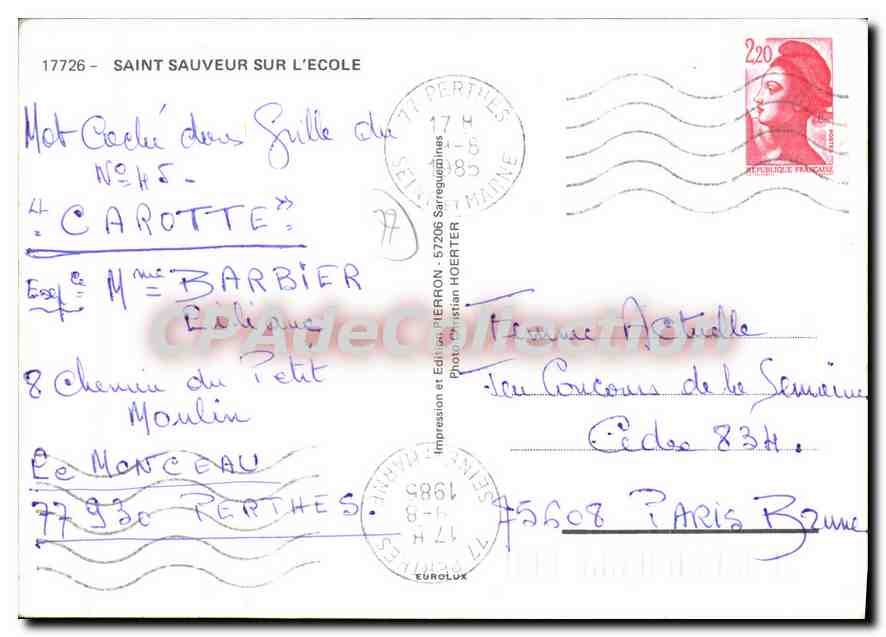 17726 - SAINT SAUVEUR SUR L'ECOLE
Mot Caché dans Grille du
N° 45 -
"CAROTTE"
Mme BARBIER
Liliane
8 Chemin du Petit
Moulin
Le MONCEAU
77 930 PERTHES.
77 PERTHES
17 H
-8
1985
SEINE ET MARNE
77
Impression et Edition PIERRON - 57206 Sarreguemines
Photo Christian HOERTER
2,20
REPUBLIQUE FRANÇAISE
Femme Actuelle
Jeu Concours de la Semaine
Cedex 834.
75608 PARIS Brune
77 PERTHES
17 H
-8
1985
SEINE ET MARNE
EUROLUX
CPAdeCollection